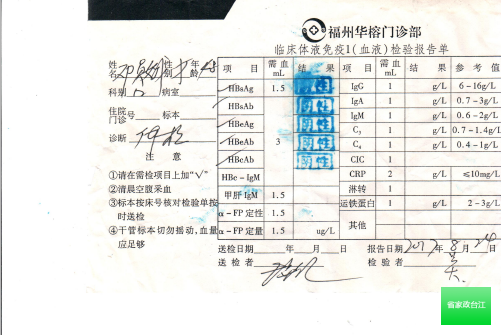 福州华榕门诊部
临床体液免疫1(血液)检验报告单
姓名 性别 年龄 48
科别 病室
住院门诊号 标本
诊断
注 意
①请在需检项目上加“√”
②清晨空腹采血
③标本按床号核对检验单按时送检
④干管标本切勿摇动，血量应足够
项 目 需血mL 结 果 项 目 需血mL 结 果 参 考 值
HBsAg 1.5 阴性 IgG 1 g/L 6－16g/L
HBsAb 阴性 IgA 1 g/L 0.7－3g/L
HBeAg 阴性 IgM 1 g/L 0.6－2g/L
HBeAb 3 阴性 C3 1 g/L 0.7－1.4g/L
HBcAb 阴性 C4 1 g/L 0.4－1g/L
HBc－IgM CIC 1
甲肝IgM 1.5 CRP 2 g/L ≤10mg/L
α－FP定性 1.5 淋转 1
α－FP定量 1.5 ug/L 运铁蛋白 1 g/L 2－3g/L
其他
送检日期 年 月 日 报告日期 2017年8月24日
送 检 者 检 验 者
省家政台江